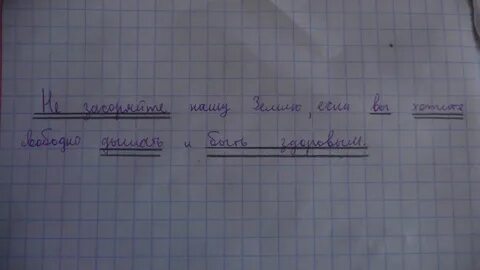 Не засоряйте нашу Землю, если вы хотите
свободно дышать и быть здоровым.